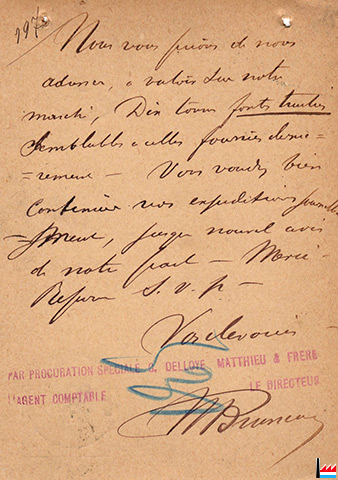 Nous vous prions de nous
adresser, à valoir sur notre
marché, Dix tonnes fontes traitées
Semblables a celles fournies derniè-
=rement — Vous voudrez bien
continuer vos expéditions journelle-
=ment, jusque nouvel avis
de notre part — Merci
Réponse S. V. p —
Vos dévoués
PAR PROCURATION SPÉCIALE D. DELLOYE, MATTHIEU & FRÈRE
L'AGENT COMPTABLE LE DIRECTEUR